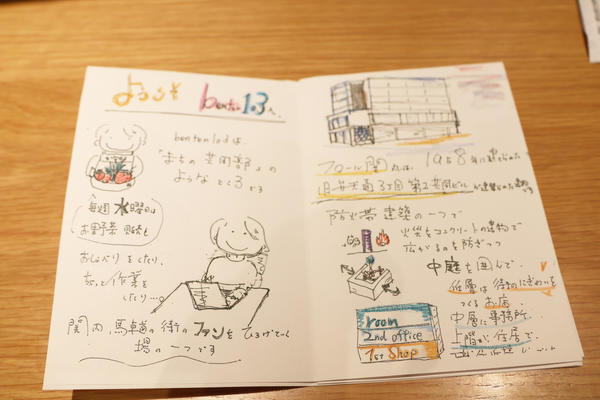 ようこそ benten103へ
benten103は、
「まちの共用部」の
ようなところです
毎週水曜日は
お野菜販売も
おしゃべりをしたり、
ちょっと作業を
したり…
関内、馬車道の街のファンをひろげていく
場の一つです
フロール関内は、1958年に
旧弁天通3丁目第2共同ビル
防火帯建築の一つで
火災をコンクリートの建物で
広がるのを防ぎつつ
中庭を囲んで、
低層は街のにぎわいを
つくるお店、
中層に事務所、
上階が住居で、
room
2nd office
1st shop